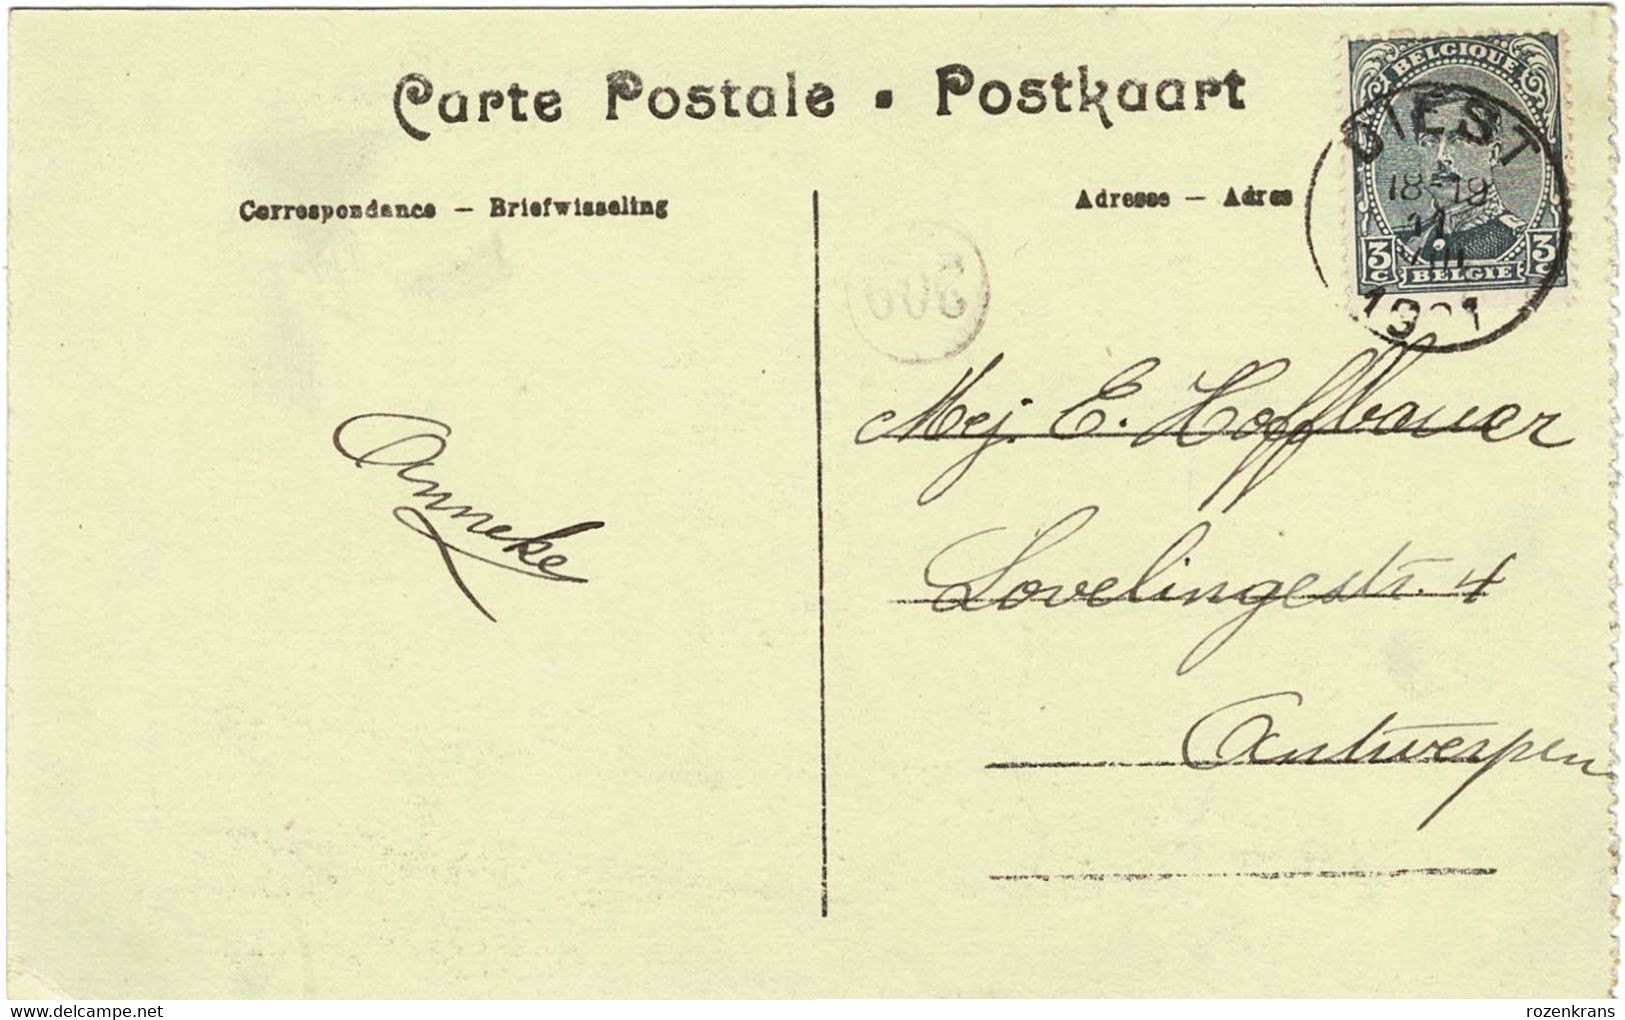 Carte Postale • Postkaart
Correspondance — Briefwisseling
Adresse — Adres
BELGIQUE
3c 3c
BELGIE
DIEST
18-19
11
VIII
1921
Mej. E. Hoffbauer
Lovelingestr. 4
Antwerpen
Anneke
www.delcampe.net
rozenkrans